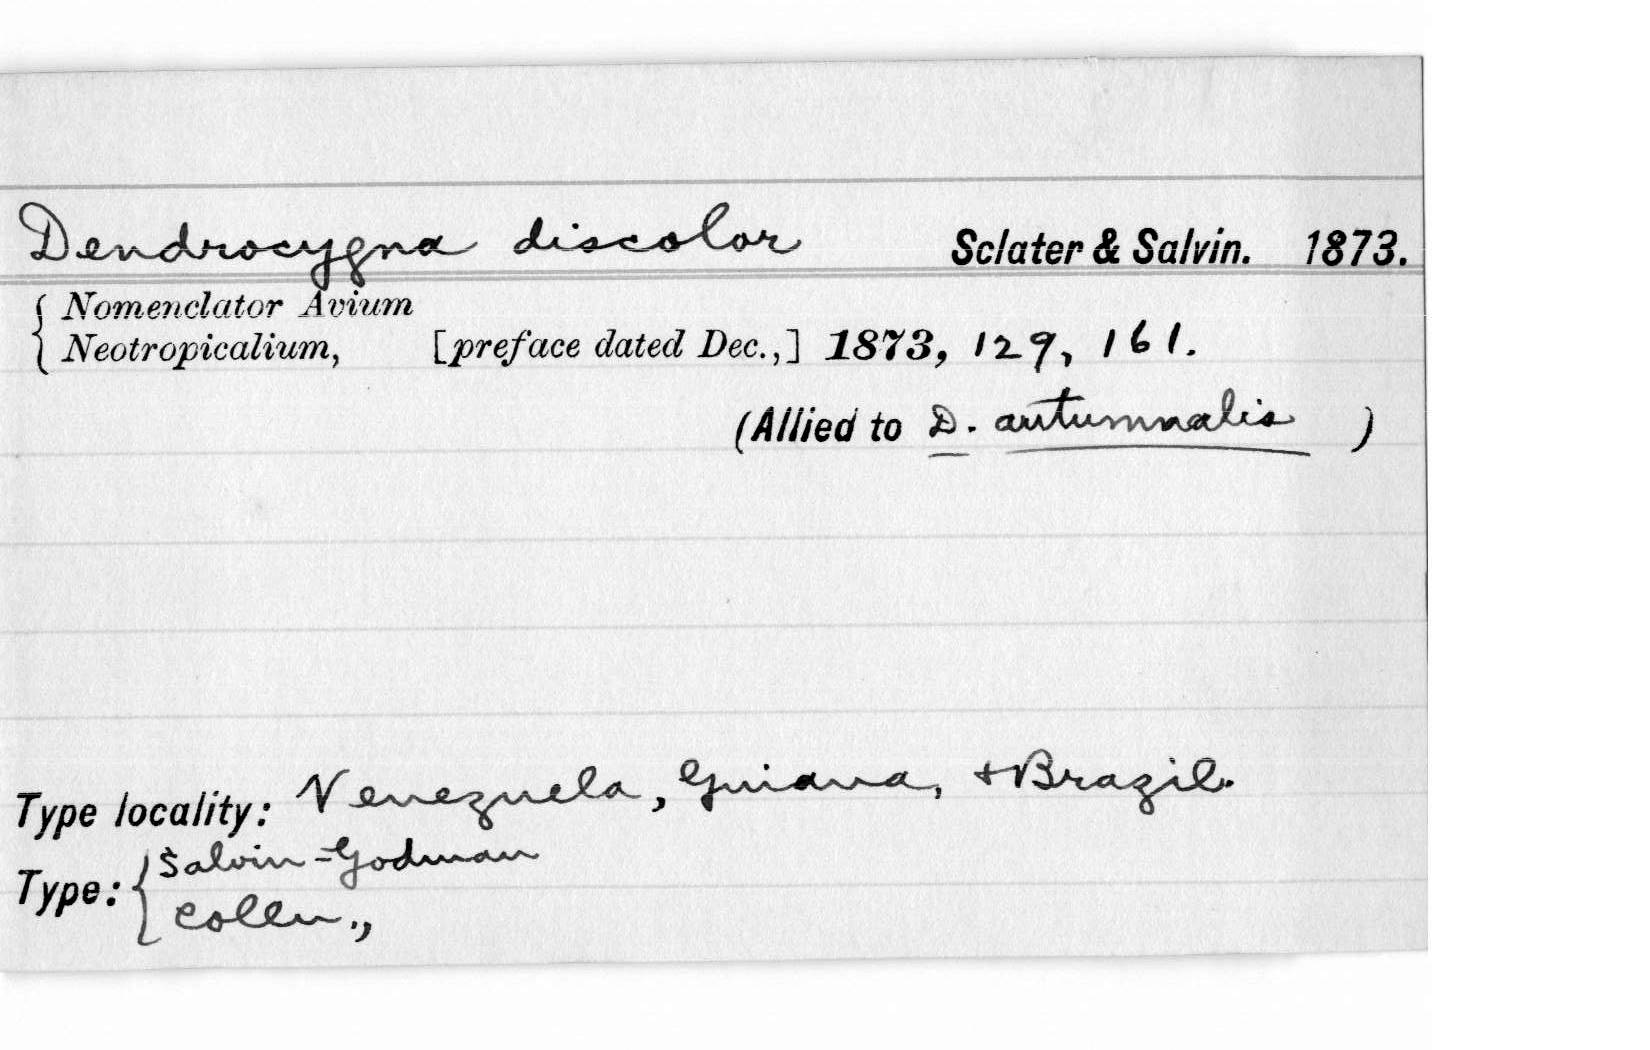 Dendrocygna discolor Sclater & Salvin. 1873.
Nomenclator Avium
Neotropicalium, [preface dated Dec.,] 1873, 129, 161.
(Allied to D. autumnalis )
Type locality: Venezuela, Guiana, + Brazil.
Type: Salvin-Godman
Colln.,